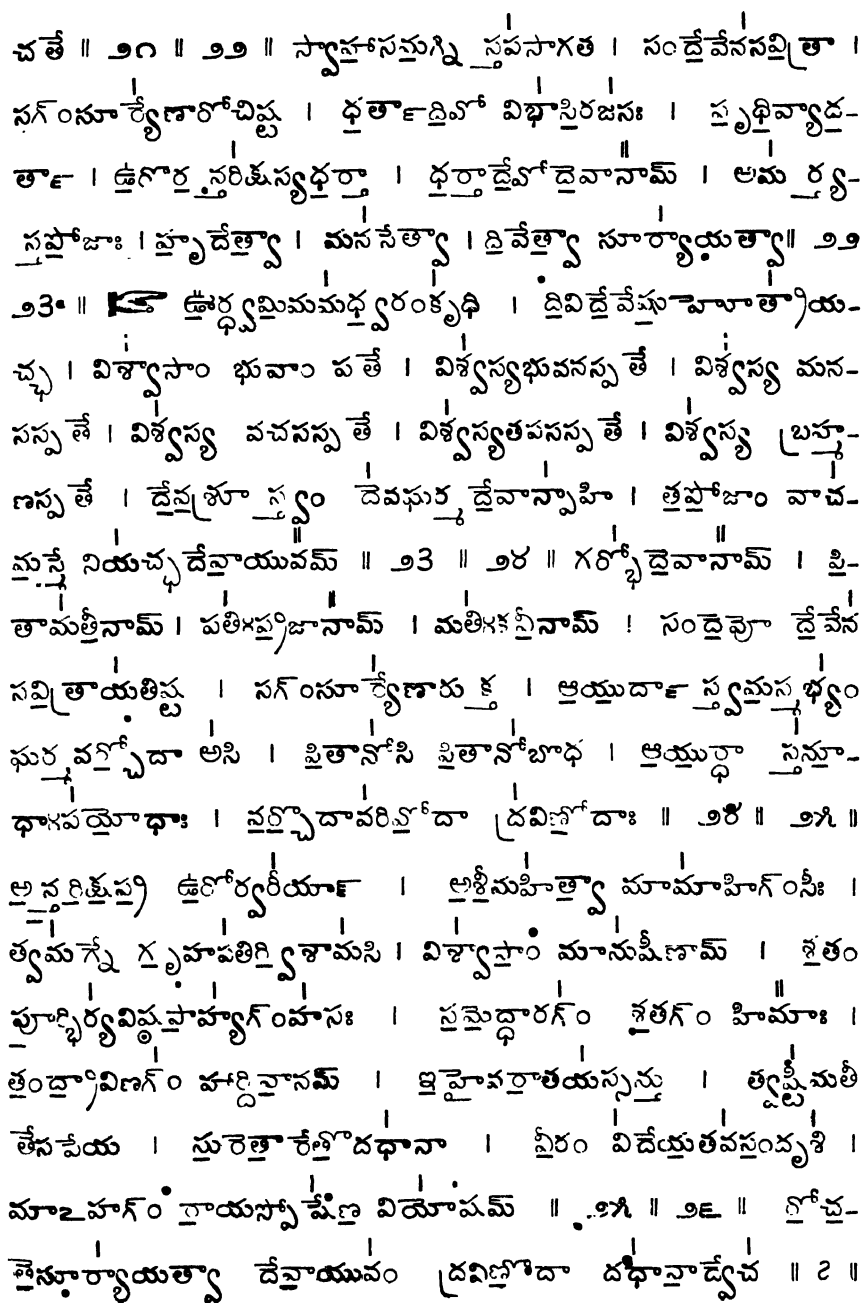 చతే ॥ ౨౧ ॥ ౨౨ ॥ స్వాహాసమగ్ని స్తపసాగత । సందేవేనసవిత్రా ।
సగ్ంసూర్యేణారోచిష్ట । ధర్తాదివో విభాసిరజసః । పృథివ్యాధ-
ర్తా । ఉరోరన్తరిక్షస్యధర్తా । ధర్తాదేవోదేవానామ్ । అమర్త్య-
స్తపోజాః । హృదేత్వా । మనసేత్వా । దివేత్వా సూర్యాయత్వా॥ ౨౨
౨౩ ॥ ☞ ఊర్ధ్వమిమమధ్వరంకృధి । దివిదేవేషుహోత్రాయ-
చ్ఛ । విశ్వాసాం భువాం పతే । విశ్వస్యభువనస్పతే । విశ్వస్య మన-
సస్పతే । విశ్వస్య వచసస్పతే । విశ్వస్యతపసస్పతే । విశ్వస్య బ్రహ్మ-
ణస్పతే । దేవశ్రూ స్త్వం దేవఘర్మ దేవాన్పాహి । తపోజాం వాచ-
మస్మే నియచ్ఛదేవాయువమ్ ॥ ౨౩ ॥ ౨౪ ॥ గర్భోదేవానామ్ । పి-
తామతీనామ్ । పతిఃప్రజానామ్ । మతిఃకవీనామ్ । సందేవో దేవేన
సవిత్రాయతిష్ట । సగ్ంసూర్యేణారుక్త । ఆయుర్దా స్త్వమస్మభ్యం
ఘర్మవర్చోదా అసి । పితానోసి పితానోబోధ । ఆయుర్ధా స్తనూ-
ధాఃపయోధాః । వర్చోదావరివోదా ద్రవిణోదాః ॥ ౨౪ ॥ ౨౫ ॥
అన్తరిక్షప్ర ఉరోర్వరీయాన్ । అశీమహిత్వా మామాహిగ్ంసీః ।
త్వమగ్నే గృహపతిర్విశామసి । విశ్వాసాం మానుషీణామ్ । శతం
పూర్భిర్యవిష్ఠపాహ్యగ్ంహసః । సమేద్ధారగ్ం శతగ్ం హిమాః ।
తంద్రావిణగ్ం హార్దివానమ్ । ఇహైవరాతయస్సన్తు । త్వష్టీమతీ
తేసపేయ । సురేతారేతోదధానా । వీరం విదేయతవసందృశి ।
మాఽహగ్ం రాయస్పోషేణ వియోషమ్ ॥ ౨౫ ॥ ౨౬ ॥ రోచ-
తేసూర్యాయత్వా దేవాయువం ద్రవిణోదా దధానాద్వేచ ॥ ౭ ॥